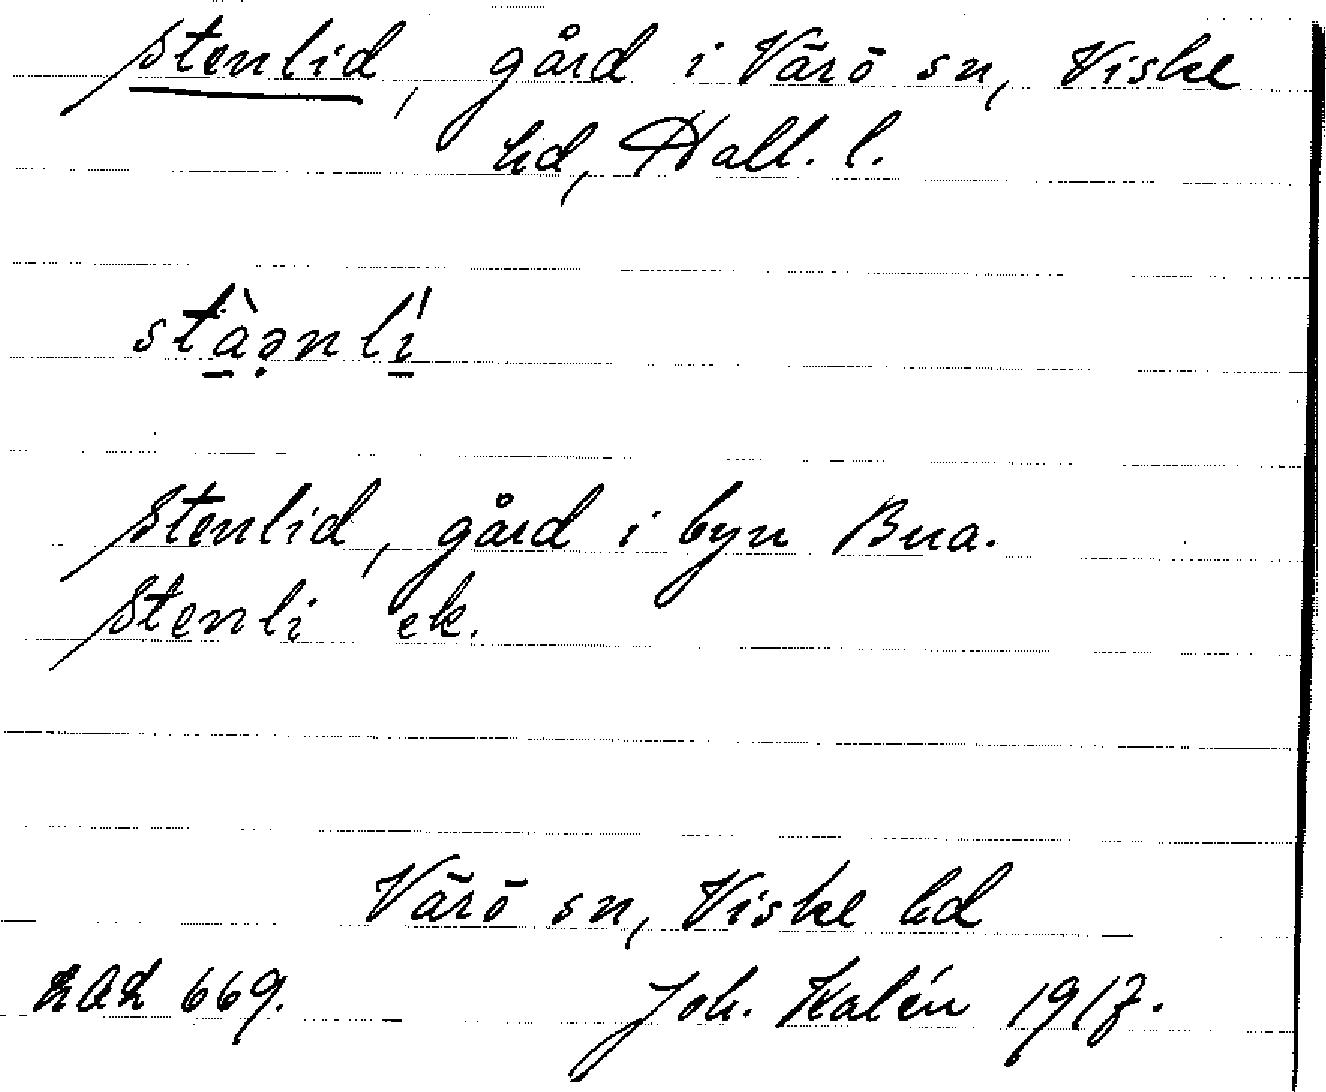 Stenlid, gård i Värö sn, Viske
hd, Hall. l.
stàənlí
Stenlid, gård i byn Bua.
Stenli ek.
Värö sn, Viske hd
669.
Joh. Kalén 1917.